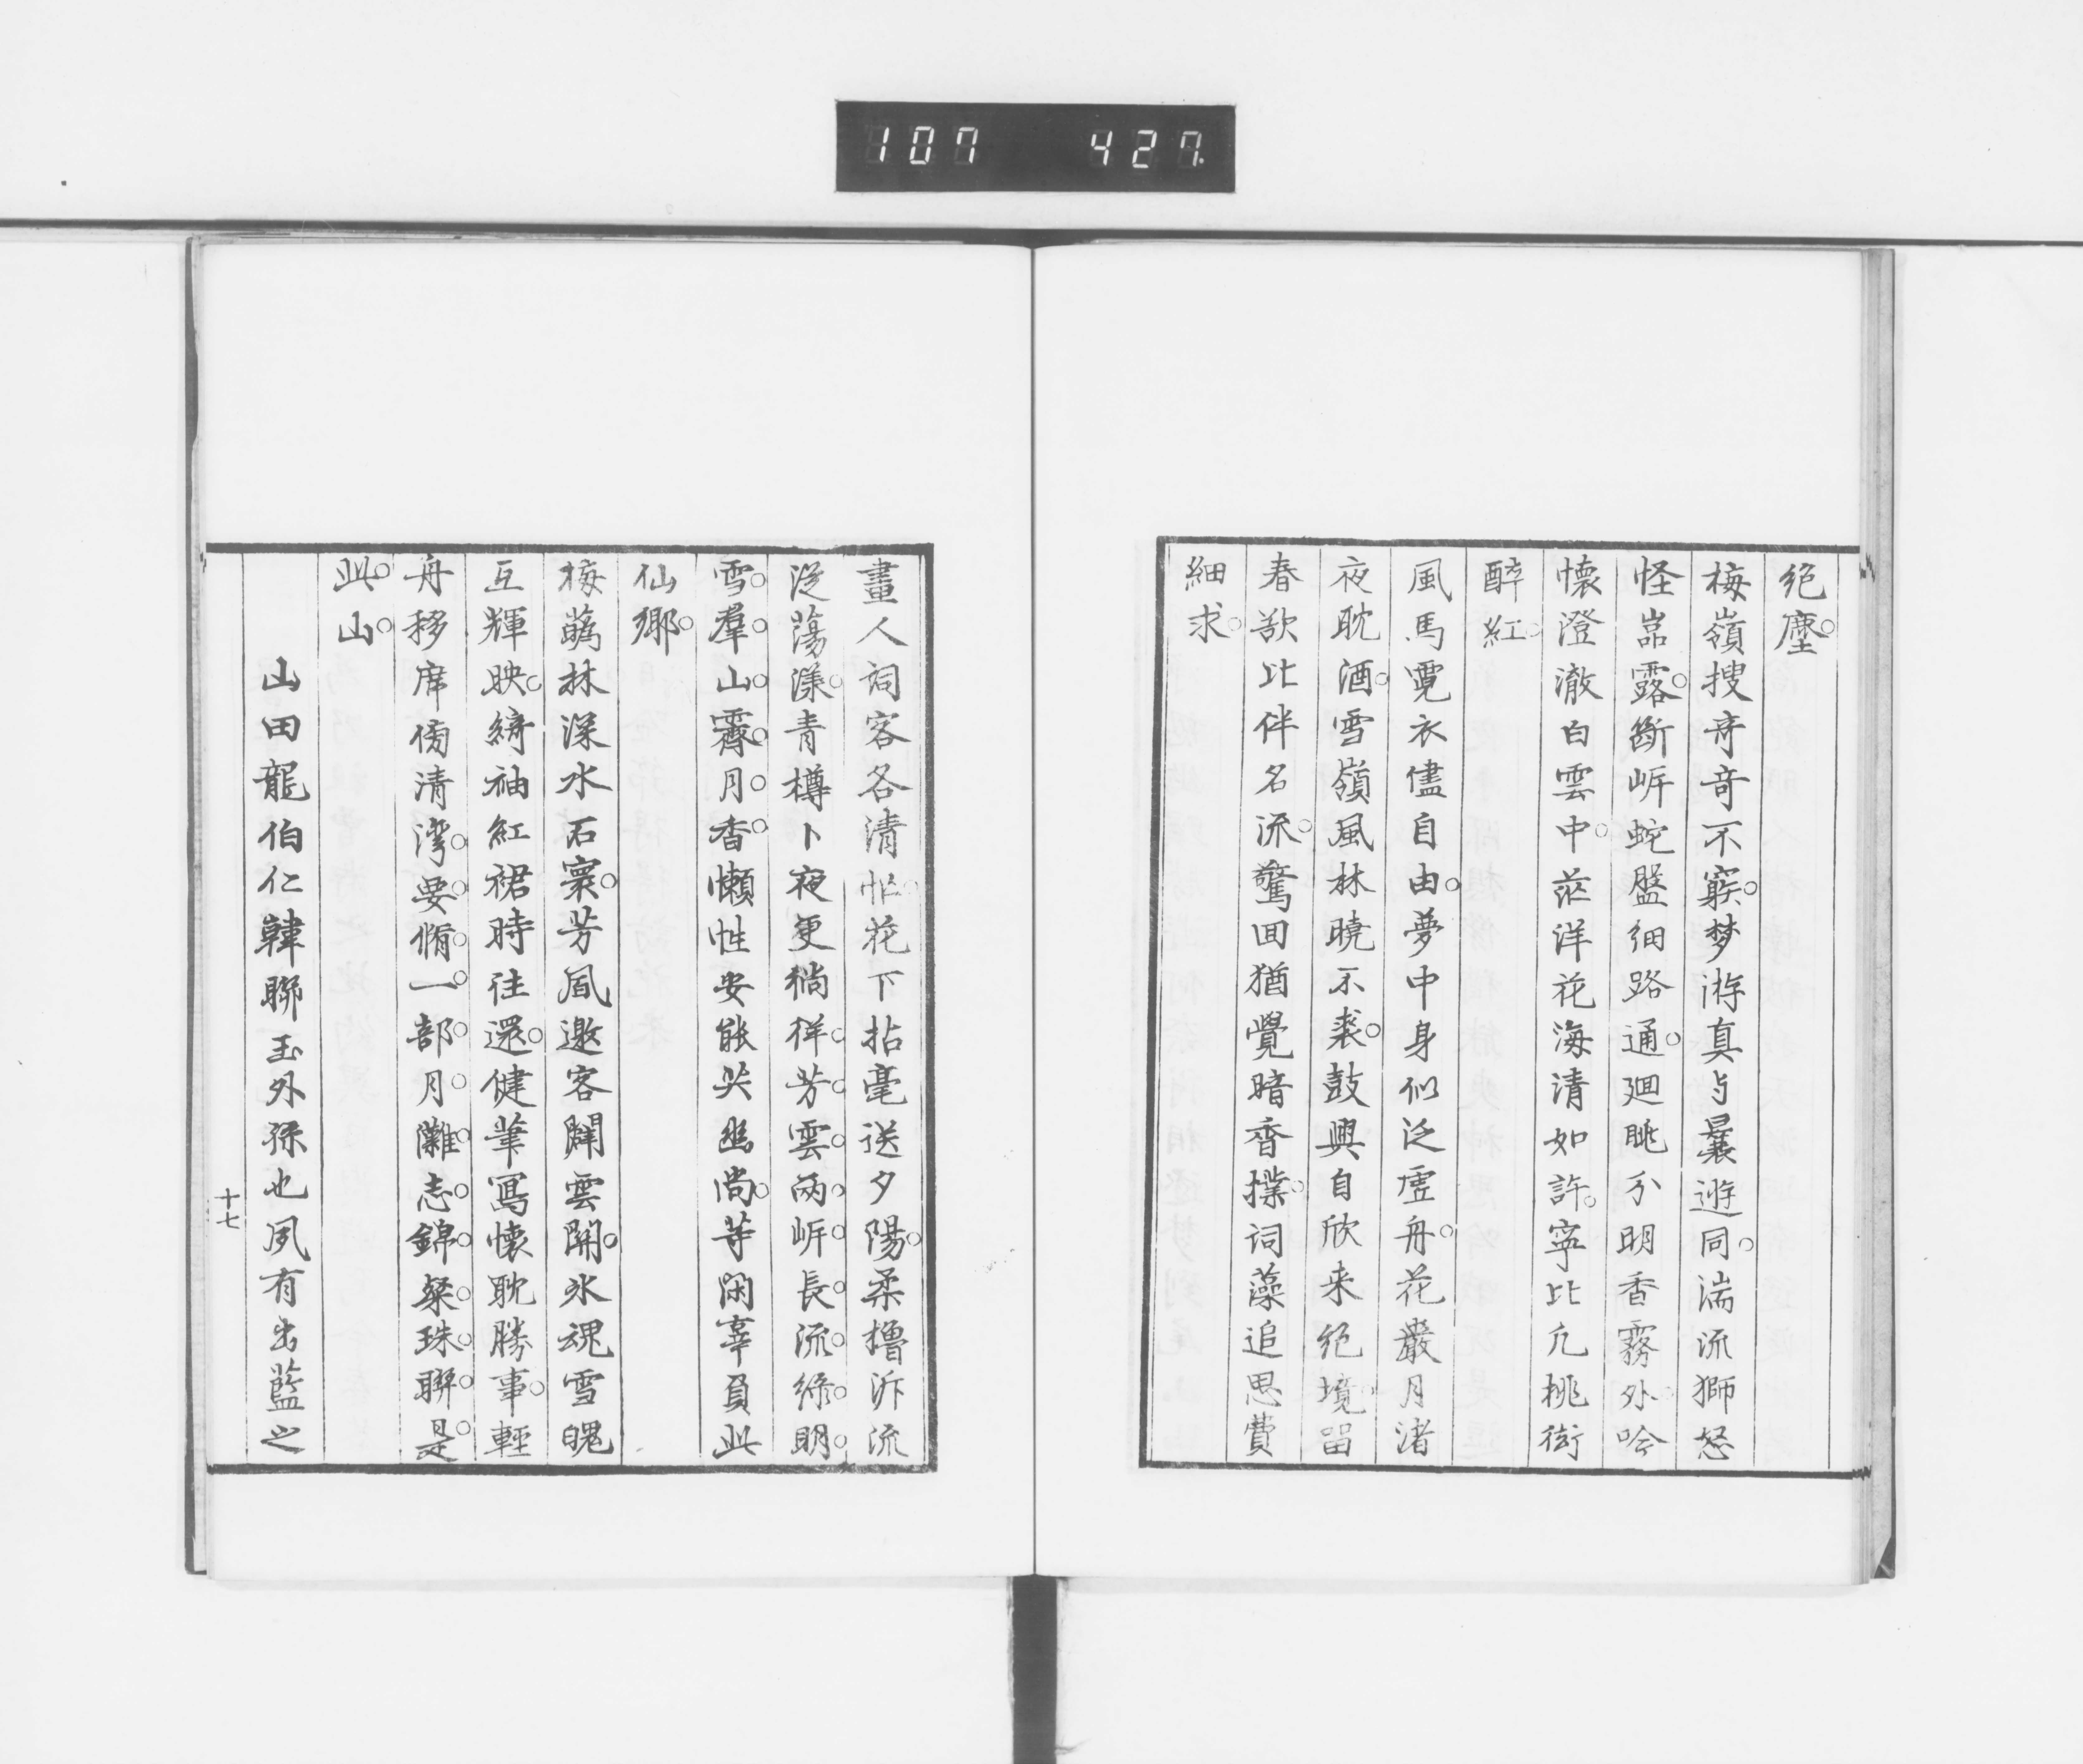 107 427
绝塵
梅嶺搜奇奇不窮梦游真与曩遊同湍流獅怒
怪嵓露斷岍蛇盤細路通廻眺分明香霧外吟
懷澄澈白雲中茫洋花海清如許寧比凢桃衒
醉紅
風馬霓衣儘自由夢中身似泛虚舟花巖月渚
夜耽酒雪嶺風林曉不裘鼓興自欣来绝境留
春欲比伴名流驚回猶覺暗香撲词藻追思費
細求
畫人詞客各清忙花下拈毫送夕陽柔櫓泝流
泛蕩漾青樽卜夜更徜徉芳雲兩岍長流綠明
雪羣山霽月香懶性安能失幽尚等閑辜負此
仙郷
梅蘤林深水石寰芳風邀客闢雲關氷魂雪魄
互輝映綺袖紅裙時往還健筆寫懷耽勝事輕
舟移席傍清湾要脩一部月瀬志錦粲珠聯是
此山
山田龍伯仁韓聯玉外孫也夙有出藍之
十七